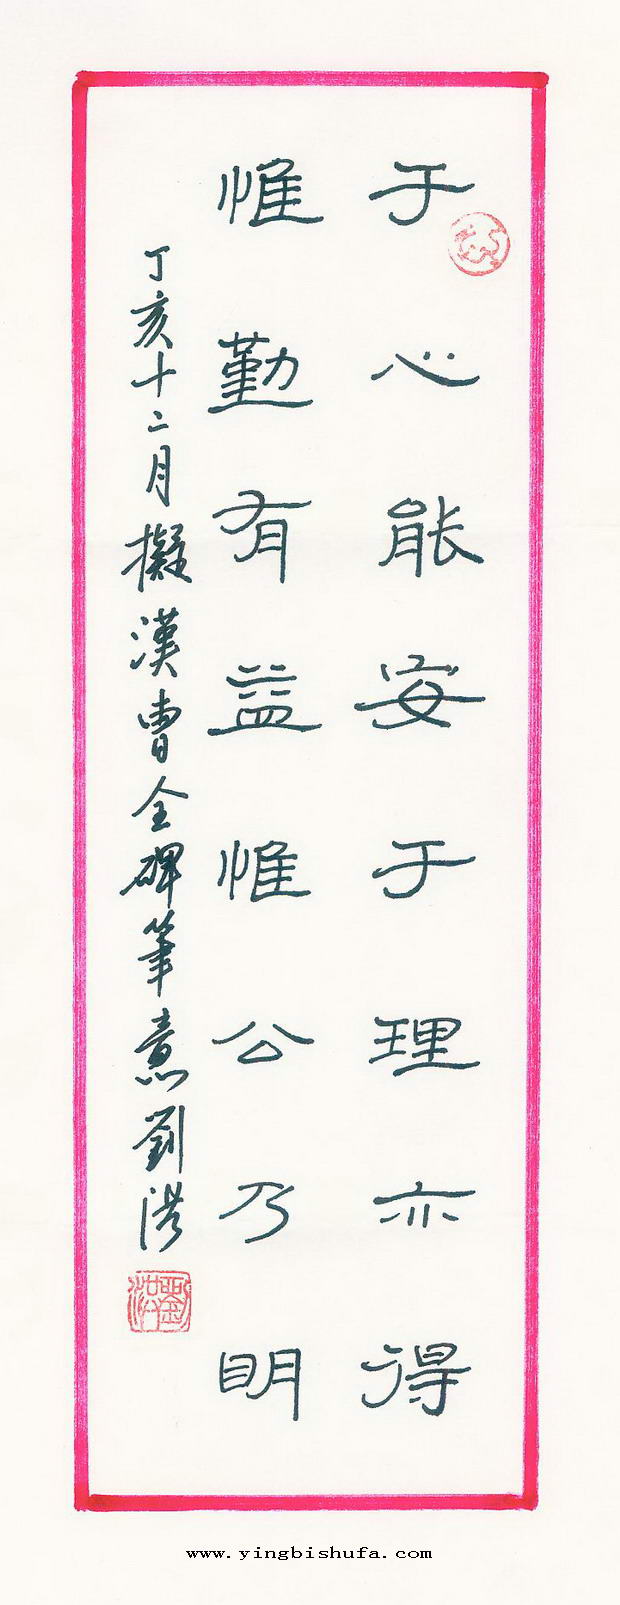 于心能安于理亦得
惟勤有益惟公乃明
丁亥十二月擬漢曹全碑筆意劉洪
劉洪
www.yingbishufa.com